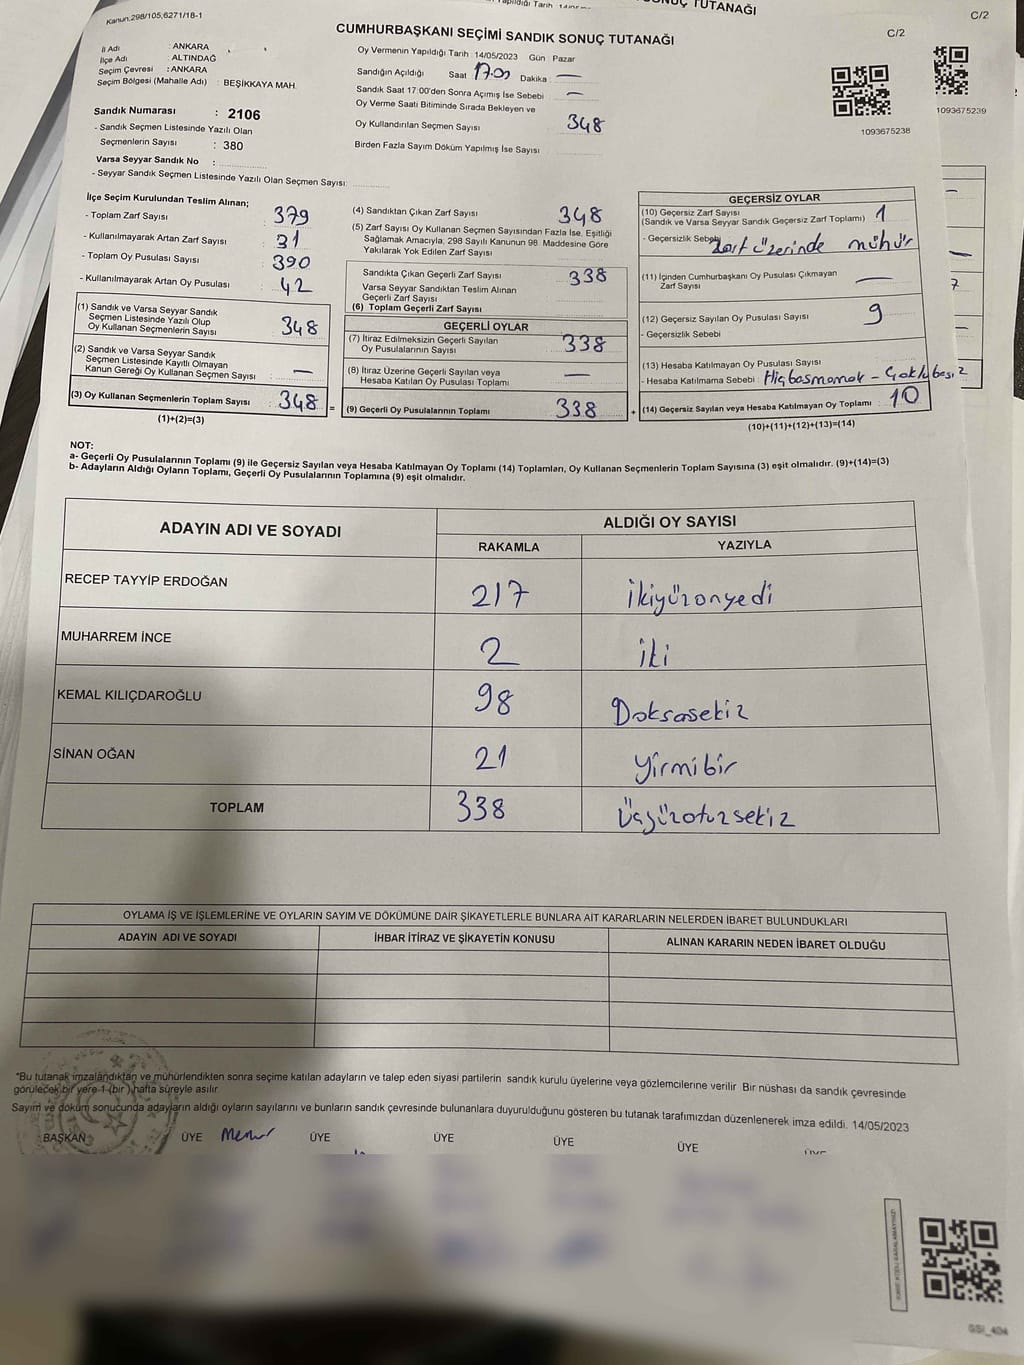 Kanun.298/105,6271/18-1
C/2
C/2
CUMHURBAŞKANI SEÇİMİ SANDIK SONUÇ TUTANAĞI
İl Adı : ANKARA
İlçe Adı : ALTINDAĞ
Seçim Çevresi : ANKARA
Seçim Bölgesi (Mahalle Adı) : BEŞİKKAYA MAH.
Sandık Numarası : 2106
- Sandık Seçmen Listesinde Yazılı Olan
Seçmenlerin Sayısı : 380
Varsa Seyyar Sandık No :
- Seyyar Sandık Seçmen Listesinde Yazılı Olan Seçmen Sayısı:
Oy Vermenin Yapıldığı Tarih : 14/05/2023 Gün Pazar
Sandığın Açıldığı Saat 17.00 Dakika —
Sandık Saat 17:00'den Sonra Açımış İse Sebebi —
Oy Verme Saati Bitiminde Sırada Bekleyen ve
Oy Kullandırılan Seçmen Sayısı 348
Birden Fazla Sayım Döküm Yapılmış İse Sayısı
1093675238
1093675239
İlçe Seçim Kurulundan Teslim Alınan;
- Toplam Zarf Sayısı 379
- Kullanılmayarak Artan Zarf Sayısı 31
- Toplam Oy Pusulası Sayısı 390
- Kullanılmayarak Artan Oy Pusulası 42
(1) Sandık ve Varsa Seyyar Sandık
Seçmen Listesinde Yazılı Olup
Oy Kullanan Seçmenlerin Sayısı 348
(2) Sandık ve Varsa Seyyar Sandık
Seçmen Listesinde Kayıtlı Olmayan
Kanun Gereği Oy Kullanan Seçmen Sayısı —
(3) Oy Kullanan Seçmenlerin Toplam Sayısı 348 =
(1)+(2)=(3)
(4) Sandıktan Çıkan Zarf Sayısı 348
(5) Zarf Sayısı Oy Kullanan Seçmen Sayısından Fazla İse, Eşitliği
Sağlamak Amacıyla, 298 Sayılı Kanunun 98. Maddesine Göre
Yakılarak Yok Edilen Zarf Sayısı
Sandıkta Çıkan Geçerli Zarf Sayısı 338
Varsa Seyyar Sandıktan Teslim Alınan
Geçerli Zarf Sayısı
(6) Toplam Geçerli Zarf Sayısı
GEÇERLİ OYLAR
(7) İtiraz Edilmeksizin Geçerli Sayılan
Oy Pusulalarının Sayısı 338
(8) İtiraz Üzerine Geçerli Sayılan veya
Hesaba Katılan Oy Pusulası Toplamı —
(9) Geçerli Oy Pusulalarının Toplamı 338 +
GEÇERSİZ OYLAR
(10) Geçersiz Zarf Sayısı 1
(Sandık ve Varsa Seyyar Sandık Geçersiz Zarf Toplamı)
- Geçersizlik Sebebi Zarf üzerinde mühür
(11) İçinden Cumhurbaşkanı Oy Pusulası Çıkmayan
Zarf Sayısı —
(12) Geçersiz Sayılan Oy Pusulası Sayısı 9
- Geçersizlik Sebebi
(13) Hesaba Katılmayan Oy Pusulası Sayısı
- Hesaba Katılmama Sebebi Hiç basmamak -
(14) Geçersiz Sayılan veya Hesaba Katılmayan Oy Toplamı : 10
(10)+(11)+(12)+(13)=(14)
NOT:
a- Geçerli Oy Pusulalarının Toplamı (9) ile Geçersiz Sayılan veya Hesaba Katılmayan Oy Toplamı (14) Toplamları, Oy Kullanan Seçmenlerin Toplam Sayısına (3) eşit olmalıdır. (9)+(14)=(3)
b- Adayların Aldığı Oyların Toplamı, Geçerli Oy Pusulalarının Toplamına (9) eşit olmalıdır.
ADAYIN ADI VE SOYADI
ALDIĞI OY SAYISI
RAKAMLA YAZIYLA
RECEP TAYYİP ERDOĞAN 217 ikiyüzonyedi
MUHARREM İNCE 2 iki
KEMAL KILIÇDAROĞLU 98 Doksasekiz
SİNAN OĞAN 21 yirmibir
TOPLAM 338 Üçyüzotuzsekiz
OYLAMA İŞ VE İŞLEMLERİNE VE OYLARIN SAYIM VE DÖKÜMÜNE DAİR ŞİKAYETLERLE BUNLARA AİT KARARLARIN NELERDEN İBARET BULUNDUKLARI
ADAYIN ADI VE SOYADI İHBAR İTİRAZ VE ŞİKAYETİN KONUSU ALINAN KARARIN NEDEN İBARET OLDUĞU
*Bu tutanak imzalandıktan ve mühürlendikten sonra seçime katılan adayların ve talep eden siyasi partilerin sandık kurulu üyelerine veya gözlemcilerine verilir. Bir nüshası da sandık çevresinde
görülecek bir yere 1 (bir) hafta süreyle asılır.
Sayım ve döküm sonucunda adayların aldığı oyların sayılarını ve bunların sandık çevresinde bulunanlara duyurulduğunu gösteren bu tutanak tarafımızdan düzenlenerek imza edildi. 14/05/2023
BAŞKAN ÜYE Memur ÜYE ÜYE ÜYE ÜYE
GSI_404